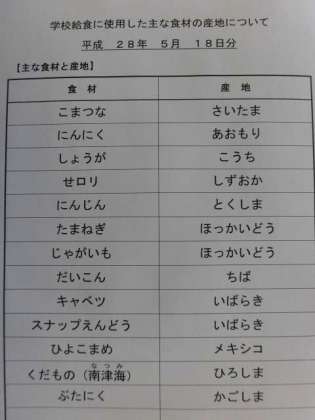 学校給食に使用した主な食材の産地について
平成 28年 5月 18日分
【主な食材と産地】
食 材 産 地
こまつな さいたま
にんにく あおもり
しょうが こうち
せロリ しずおか
にんじん とくしま
たまねぎ ほっかいどう
じゃがいも ほっかいどう
だいこん ちば
キャベツ いばらき
スナップえんどう いばらき
ひよこまめ メキシコ
なつみ
くだもの（南津海） ひろしま
ぶたにく かごしま